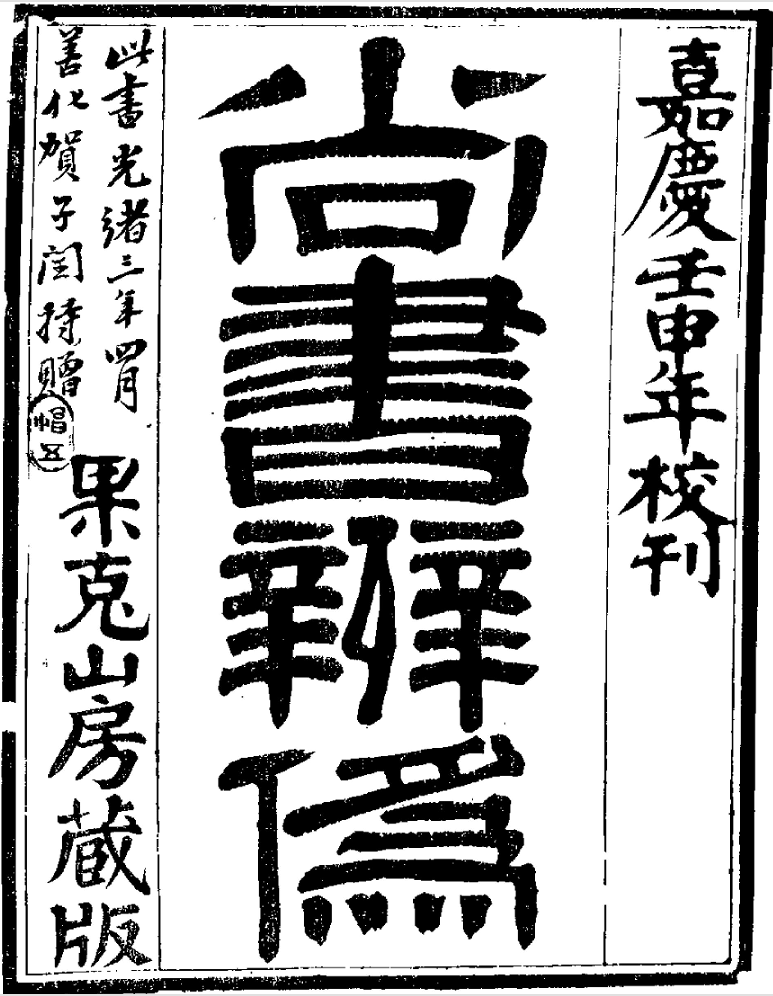 嘉慶壬申年校刊
尚書辨僞
此書光緒三年四月
善化賀子閏持贈
果克山房藏版